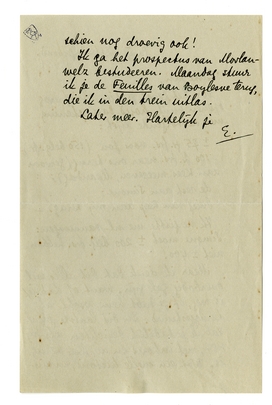 schien nog droevig ook!
Ik ga het prospectus van Morlan-
welz bestudeeren. Maandag stuur
ik je de Feuilles van Boylesve terug,
die ik in den trein uitlas.
Later meer. Hartelijk je
E.